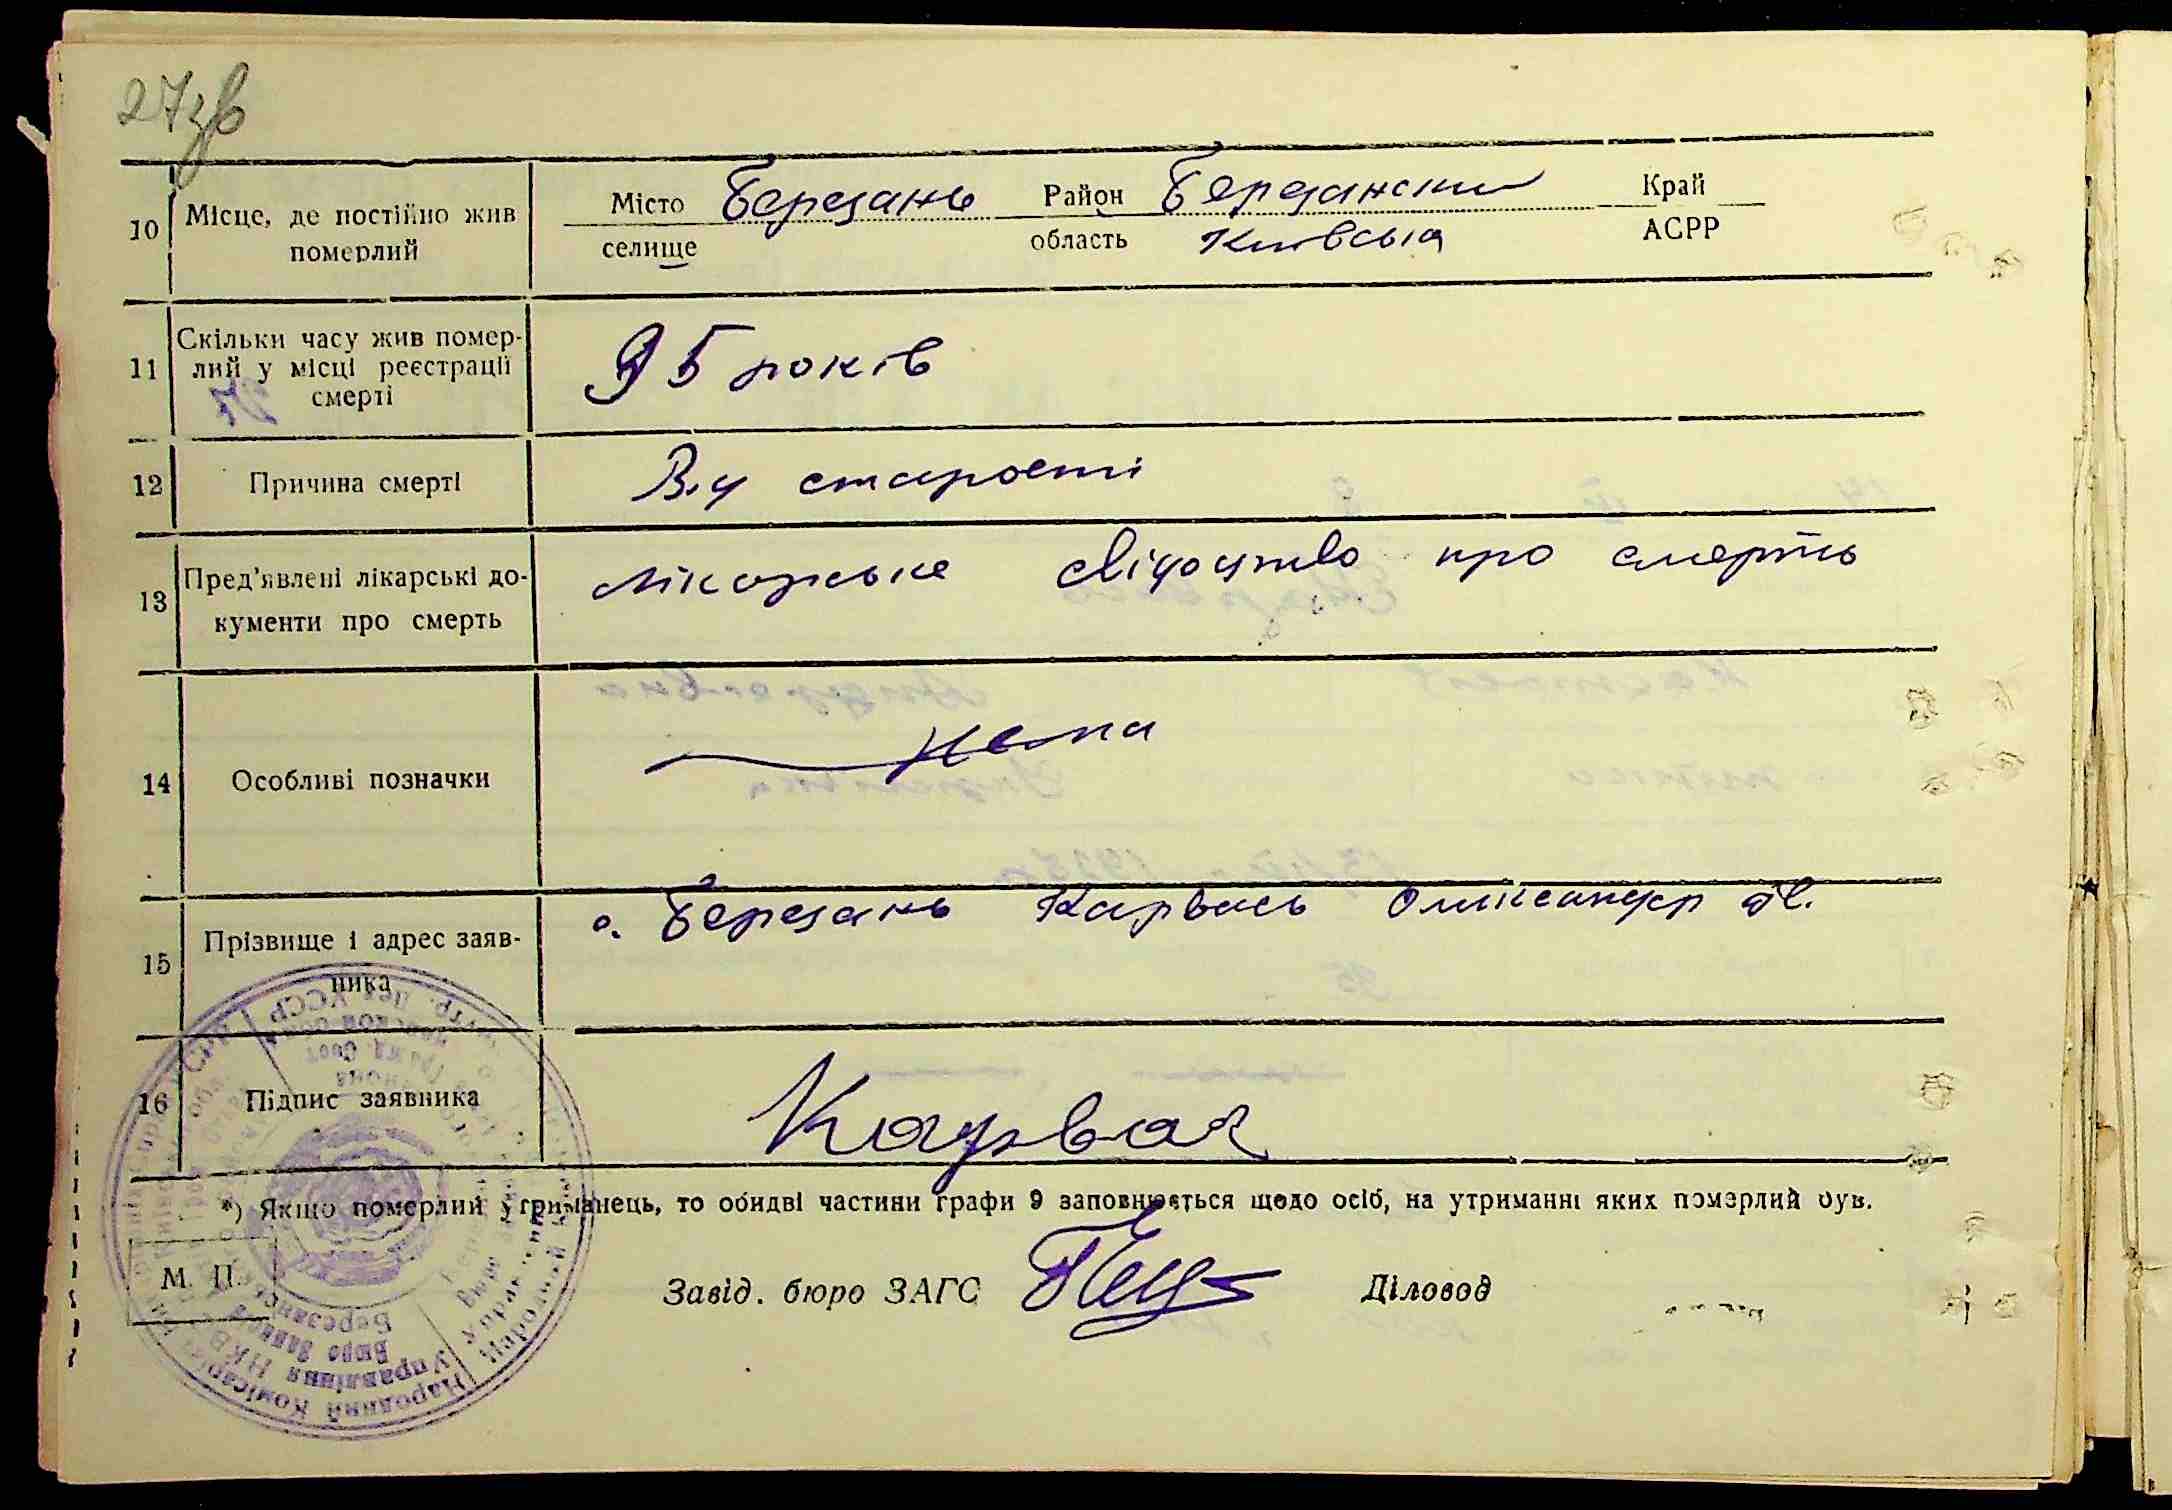 27зв
10 Місце, де постійно жив Місто Березань Район Березански Край
померлий селище область Київська АСРР
11 Скільки часу жив помер-
лий у місці реєстрації
смерті
95 років
27
12 Причина смерті Від старості
13 Пред'явлені лікарські до-
кументи про смерть
лікарське свідоцтво про смерть
14 Особливі позначки нема
15 Прізвище і адрес заяв-
ника
с. Березань Карвась Олександр
16 Підпис заявника
*) Якщо померлий утриманець, то обидві частини графи 9 заповнюється щодо осіб, на утриманні яких померлий був.
М. П.
Завід. бюро ЗАГС Діловод
Народний Комісаріат
Управління НКВС
Бюро